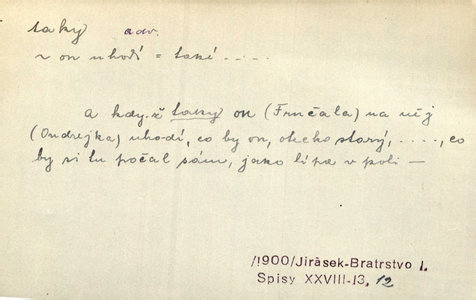 taky adv.
~ on uhodí = také . . . .
a když taky on (Frnčala) na něj
(Ondrejka) uhodí, co by on, otecko starý, . . . ., co
by si tu počal sám, jako lípa v poli —
/1900/Jirásek-Bratrstvo I.
Spisy XXVIII-13, 12